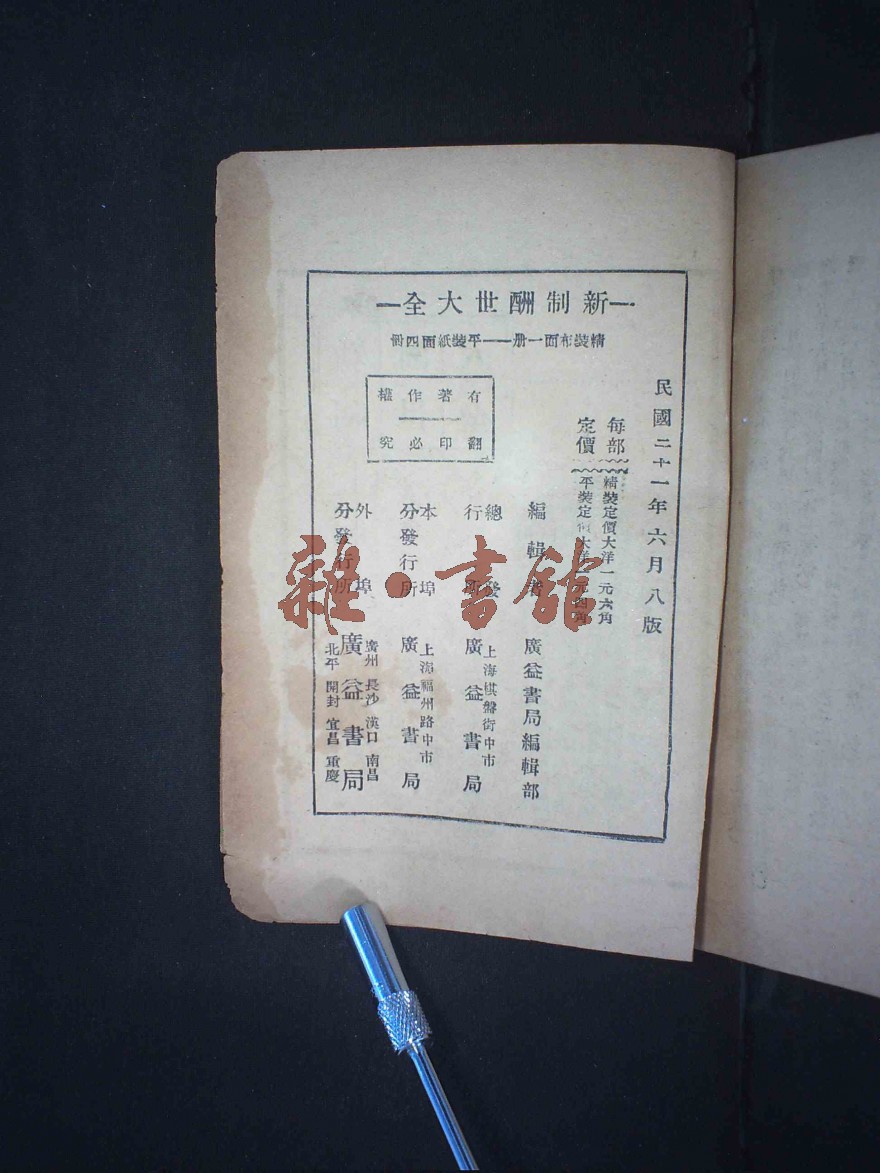 一新制酬世大全一
精裝布面一册——平裝紙面四冊
民國二十一年六月八版
每部定價
精裝定價大洋一元六角
平裝定價大洋一元四角
有著作權
翻印必究
編輯者 廣益書局編輯部
總發行所 上海棋盤街中市 廣益書局
本埠分發行所 上海福州路中市 廣益書局
外埠分發行所 廣州 長沙 漢口 南昌 廣益書局 北平 開封 宜昌 重慶
雜·書館